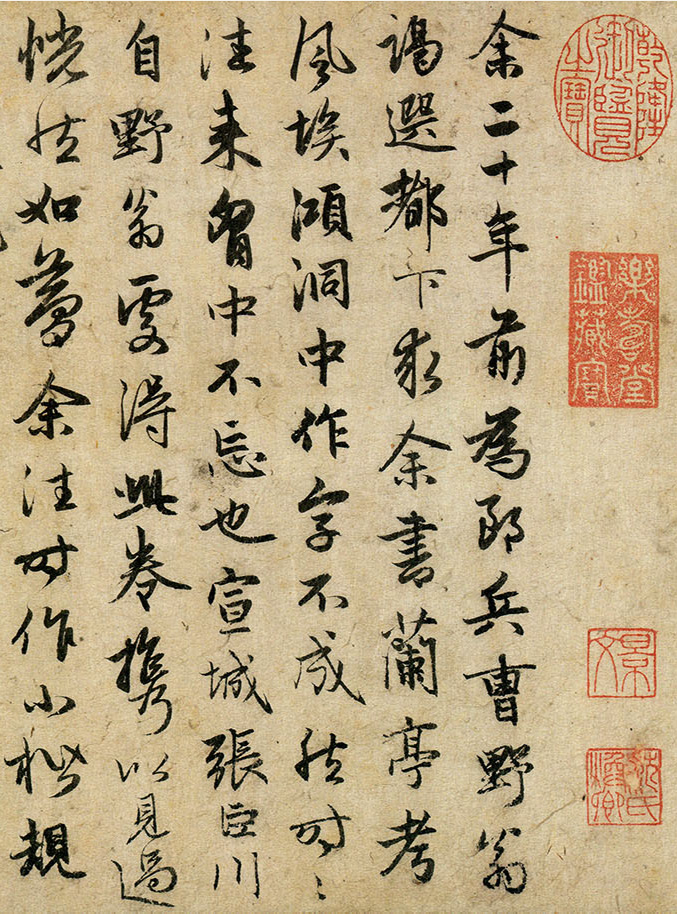 乾隆御覽之寶
樂壽堂鑑藏寶
余二十年前為郎兵曹野翁
謁選都下求余書蘭亭考
風埃澒洞中作字不成然時〻
往来胷中不忘也宣城張臣川
自野翁處得此卷攜以見過
恍然如夢余往時作小楷規